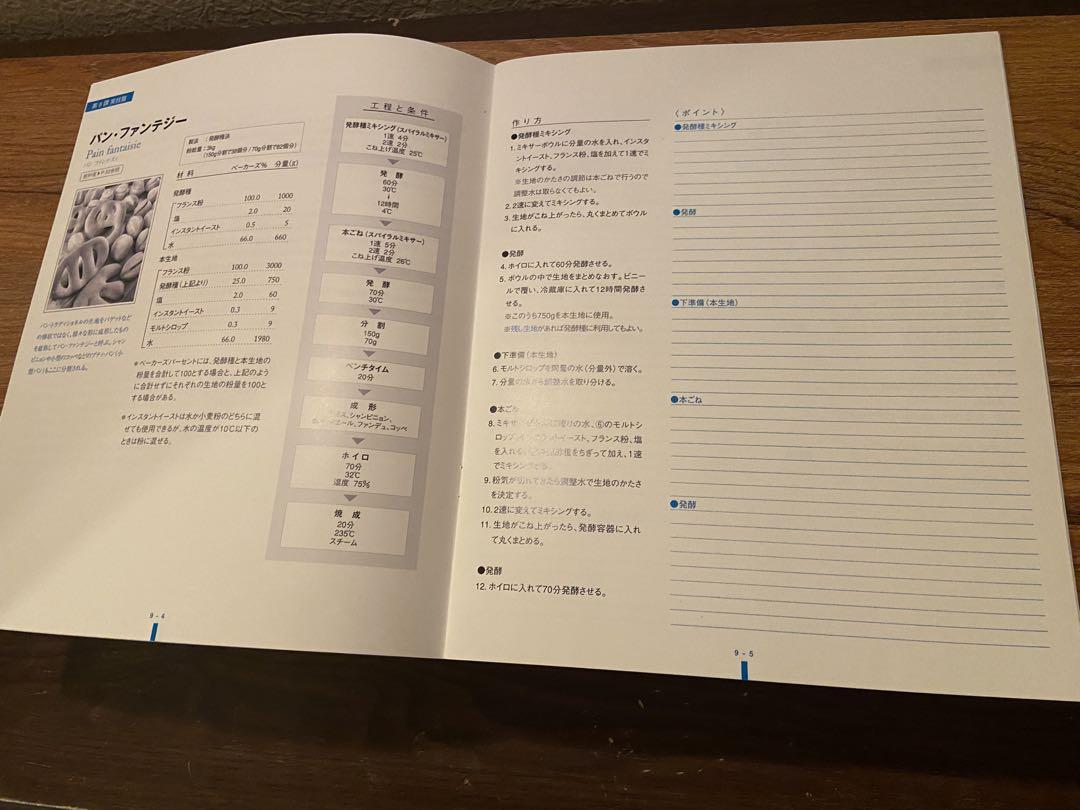 パン・ファンテジー
Pain fantaisie
製法 : 発酵種法
粉総量 : 3kg
(150g分割で38個分 / 70g分割で82個分)
材 料 ベーカーズ% 分量(g)
発酵種
フランス粉 100.0 1000
塩 2.0 20
インスタントイースト 0.5 5
水 66.0 660
本生地
フランス粉 100.0 3000
発酵種(上記より) 25.0 750
塩 2.0 60
インスタントイースト 0.3 9
モルトシロップ 0.3 9
水 66.0 1980
※ベーカーズパーセントには、発酵種と本生地の
粉量を合計して100とする場合と、上記のよう
に合計せずにそれぞれの生地の粉量を100と
する場合がある。
※インスタントイーストは水か小麦粉のどちらに混
ぜても使用できるが、水の温度が10℃以下の
ときは粉に混ぜる。
9 - 4
工程と条件
発酵種ミキシング(スパイラルミキサー)
1速 4分
2速 2分
こね上げ温度 25℃
発 酵
60分
30℃
↓
12時間
4℃
本ごね(スパイラルミキサー)
1速 5分
2速 2分
こね上げ温度 26℃
発 酵
70分
30℃
分 割
150g
70g
ベンチタイム
20分
成 形
シャンピニョン、
ファンデュ、コッペ
ホイロ
70分
32℃
湿度 75%
焼 成
20分
235℃
スチーム
作り方
●発酵種ミキシング
1. ミキサーボウルに分量の水を入れ、インスタ
ントイースト、フランス粉、塩を加えて1速でミ
キシングする。
※生地のかたさの調節は本ごねで行うので
調整水は取らなくてもよい。
2. 2速に変えてミキシングする。
3. 生地がこね上がったら、丸くまとめてボウル
に入れる。
●発酵
4. ホイロに入れて60分発酵させる。
5. ボウルの中で生地をまとめなおす。ビニー
ルで覆い、冷蔵庫に入れて12時間発酵さ
せる。
※このうち750gを本生地に使用。
※残し生地があれば発酵種に利用してもよい。
●下準備(本生地)
6. モルトシロップを同量の水(分量外)で溶く。
7. 分量の水から調整水を取り分ける。
●本ごね
8. ミキサーボウルに残りの水、⑥のモルトシ
ロップ、インスタントイースト、フランス粉、塩
を入れる。発酵種をちぎって加え、1速
でミキシングする。
9. 粉気が切れてきたら調整水で生地のかたさ
を決定する。
10. 2速に変えてミキシングする。
11. 生地がこね上がったら、発酵容器に入れ
て丸くまとめる。
●発酵
12. ホイロに入れて70分発酵させる。
〈ポイント〉
●発酵種ミキシング
●発酵
●下準備(本生地)
●本ごね
●発酵
9 - 5